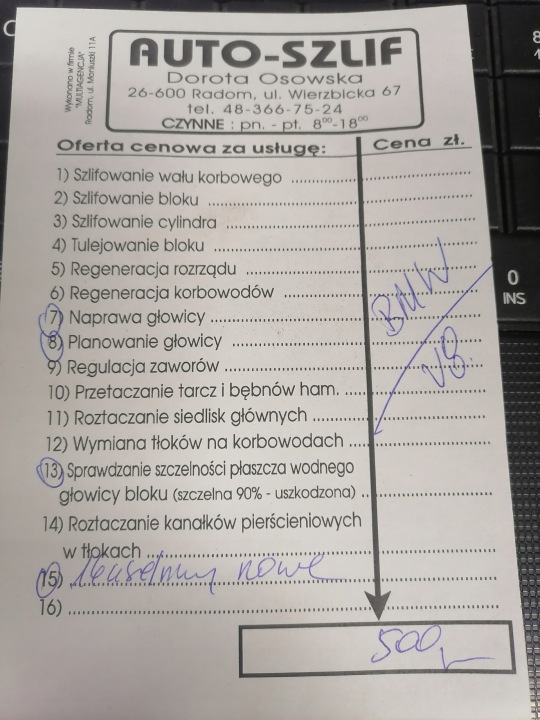 Wykonano w firmie
"MULTIAGENCJA"
Radom, ul. Moniuszki 11A
AUTO-SZLIF
Dorota Osowska
26-600 Radom, ul. Wierzbicka 67
tel. 48-366-75-24
CZYNNE : pn. - pt. 8⁰⁰-18⁰⁰
Oferta cenowa za usługę: Cena zł.
1) Szlifowanie wału korbowego
2) Szlifowanie bloku
3) Szlifowanie cylindra
4) Tulejowanie bloku
5) Regeneracja rozrządu
6) Regeneracja korbowodów
7) Naprawa głowicy
8) Planowanie głowicy
9) Regulacja zaworów
10) Przetaczanie tarcz i bębnów ham.
11) Roztaczanie siedlisk głównych
12) Wymiana tłoków na korbowodach
13) Sprawdzanie szczelności płaszcza wodnego
głowicy bloku (szczelna 90% - uszkodzona)
14) Roztaczanie kanałków pierścieniowych
w tłokach
15) nowe
16)
BMW
V8.
500,-
0
INS
8